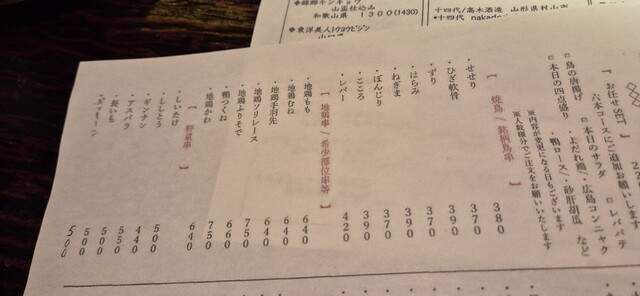 ◆東洋美人トヨウビジン
山盃仕込み
和歌山県 1300(1430)
十四代/高木酒造 山形県村山市
【 お任せSET 】
六本コースにご追加お願いします
□本日のサラダ □レバパテ
□鳥の唐揚げ □よだれ鶏
□本日の四点盛り
鴨ロース/砂肝胡瓜 など
広島コンニャク
※内容が変更になる日もございます
※人数様分でご注文をお願いいたします
【 焼鳥/銘柄鳥串 】
・せせり 380
・ひざ軟骨 370
・ずり 390
・はらみ 370
・ねぎま 390
・ぼんじり 370
・こころ 390
・レバー 420
【 地鶏串/希少部位串等 】
・地鶏もも 640
・地鶏むね 640
・地鶏手羽先 640
・地鶏ソリレース 750
・地鶏ふりそで 660
・鴨つくね 750
・地鶏かわ 640
【 野菜串 】
・しいたけ 500
・ししとう 440
・ギンナン 550
・アスパラ 500
・長いも 500
・ズッキーニ 500